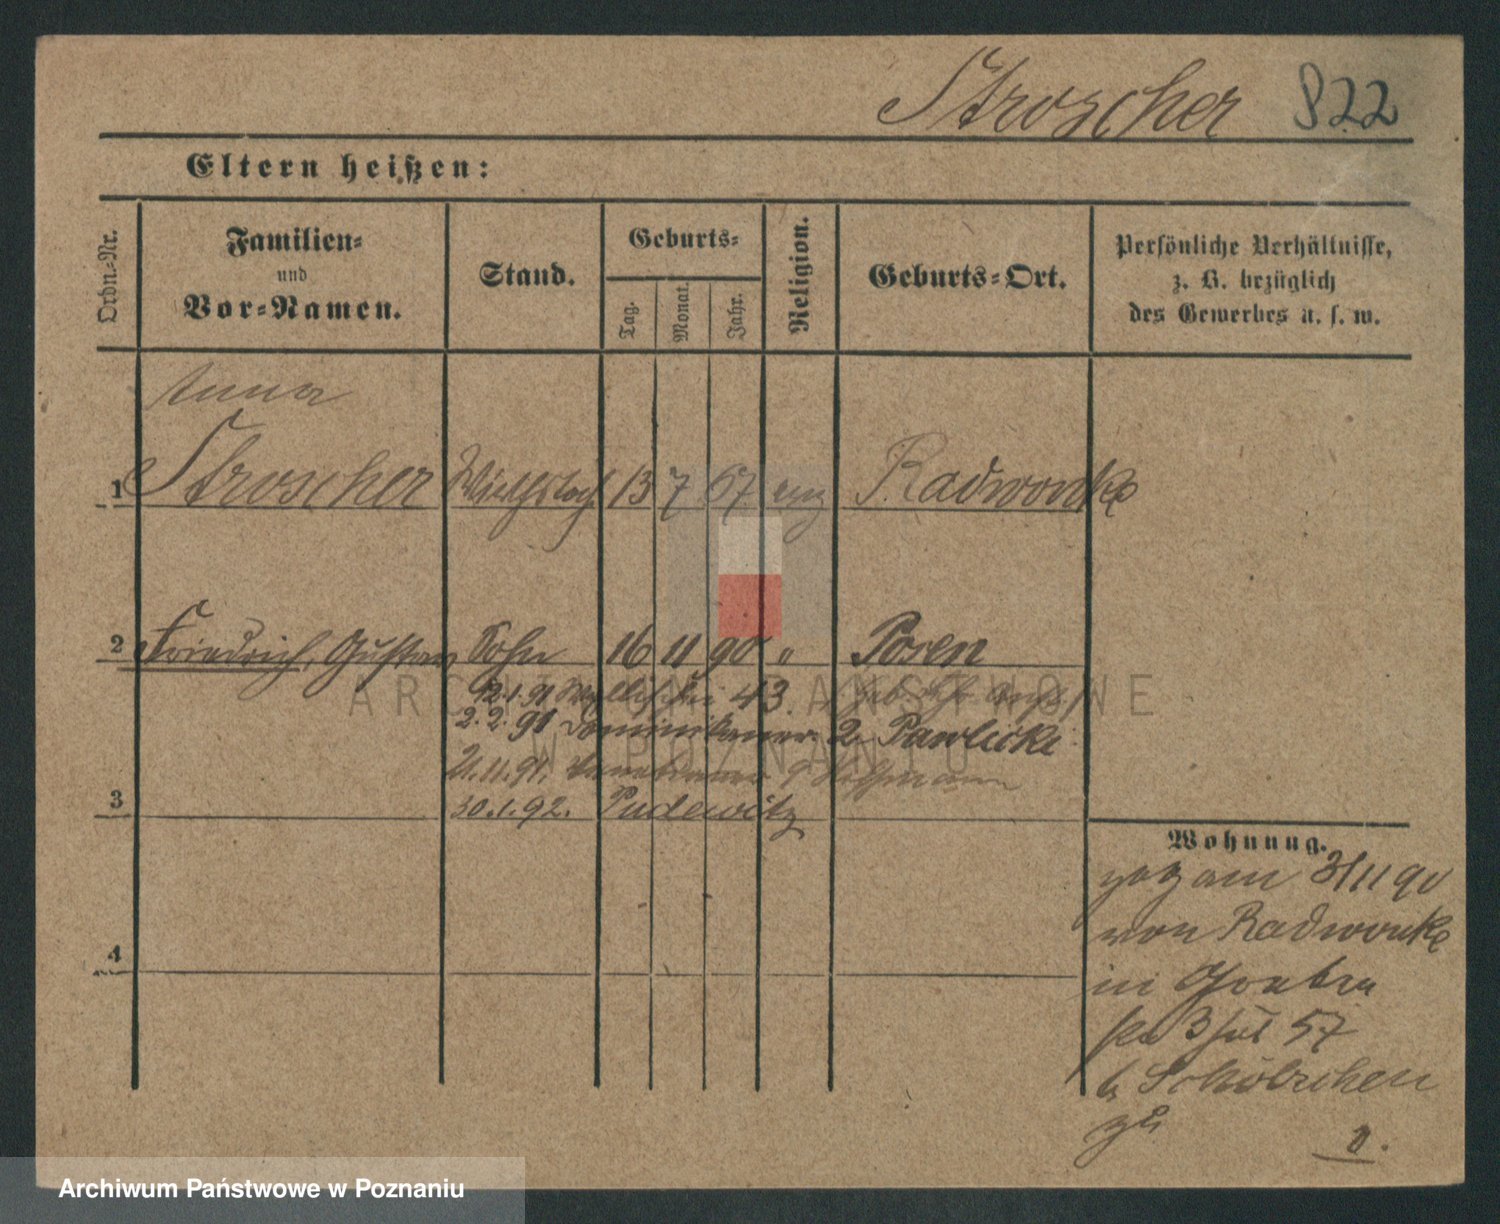 Stroscher 822
Eltern heißen:
Ordn.-Nr.
Familien-
und
Vor-Namen.
Stand.
Geburts-
Tag.
Monat.
Jahr.
Religion.
Geburts-Ort.
Persönliche Verhältnisse,
z. B. bezüglich
des Gewerbes u. s. w.
Anna
1 Stroscher 13 7 67 Radwonke
2 Friedrich, Gustav Sohn 16 11 90 " Posen
12.1.91 43.
2.2.91 Dominikaner 2 Pawlicki
21.11.91. 9 Hoffmann
3 30.1.92. Pudewitz
Wohnung.
zog am 3/11 90
von Radwonke
in
3 57
b
zu
4
ARCHIWUM PAŃSTWOWE
W POZNANIU
Archiwum Państwowe w Poznaniu